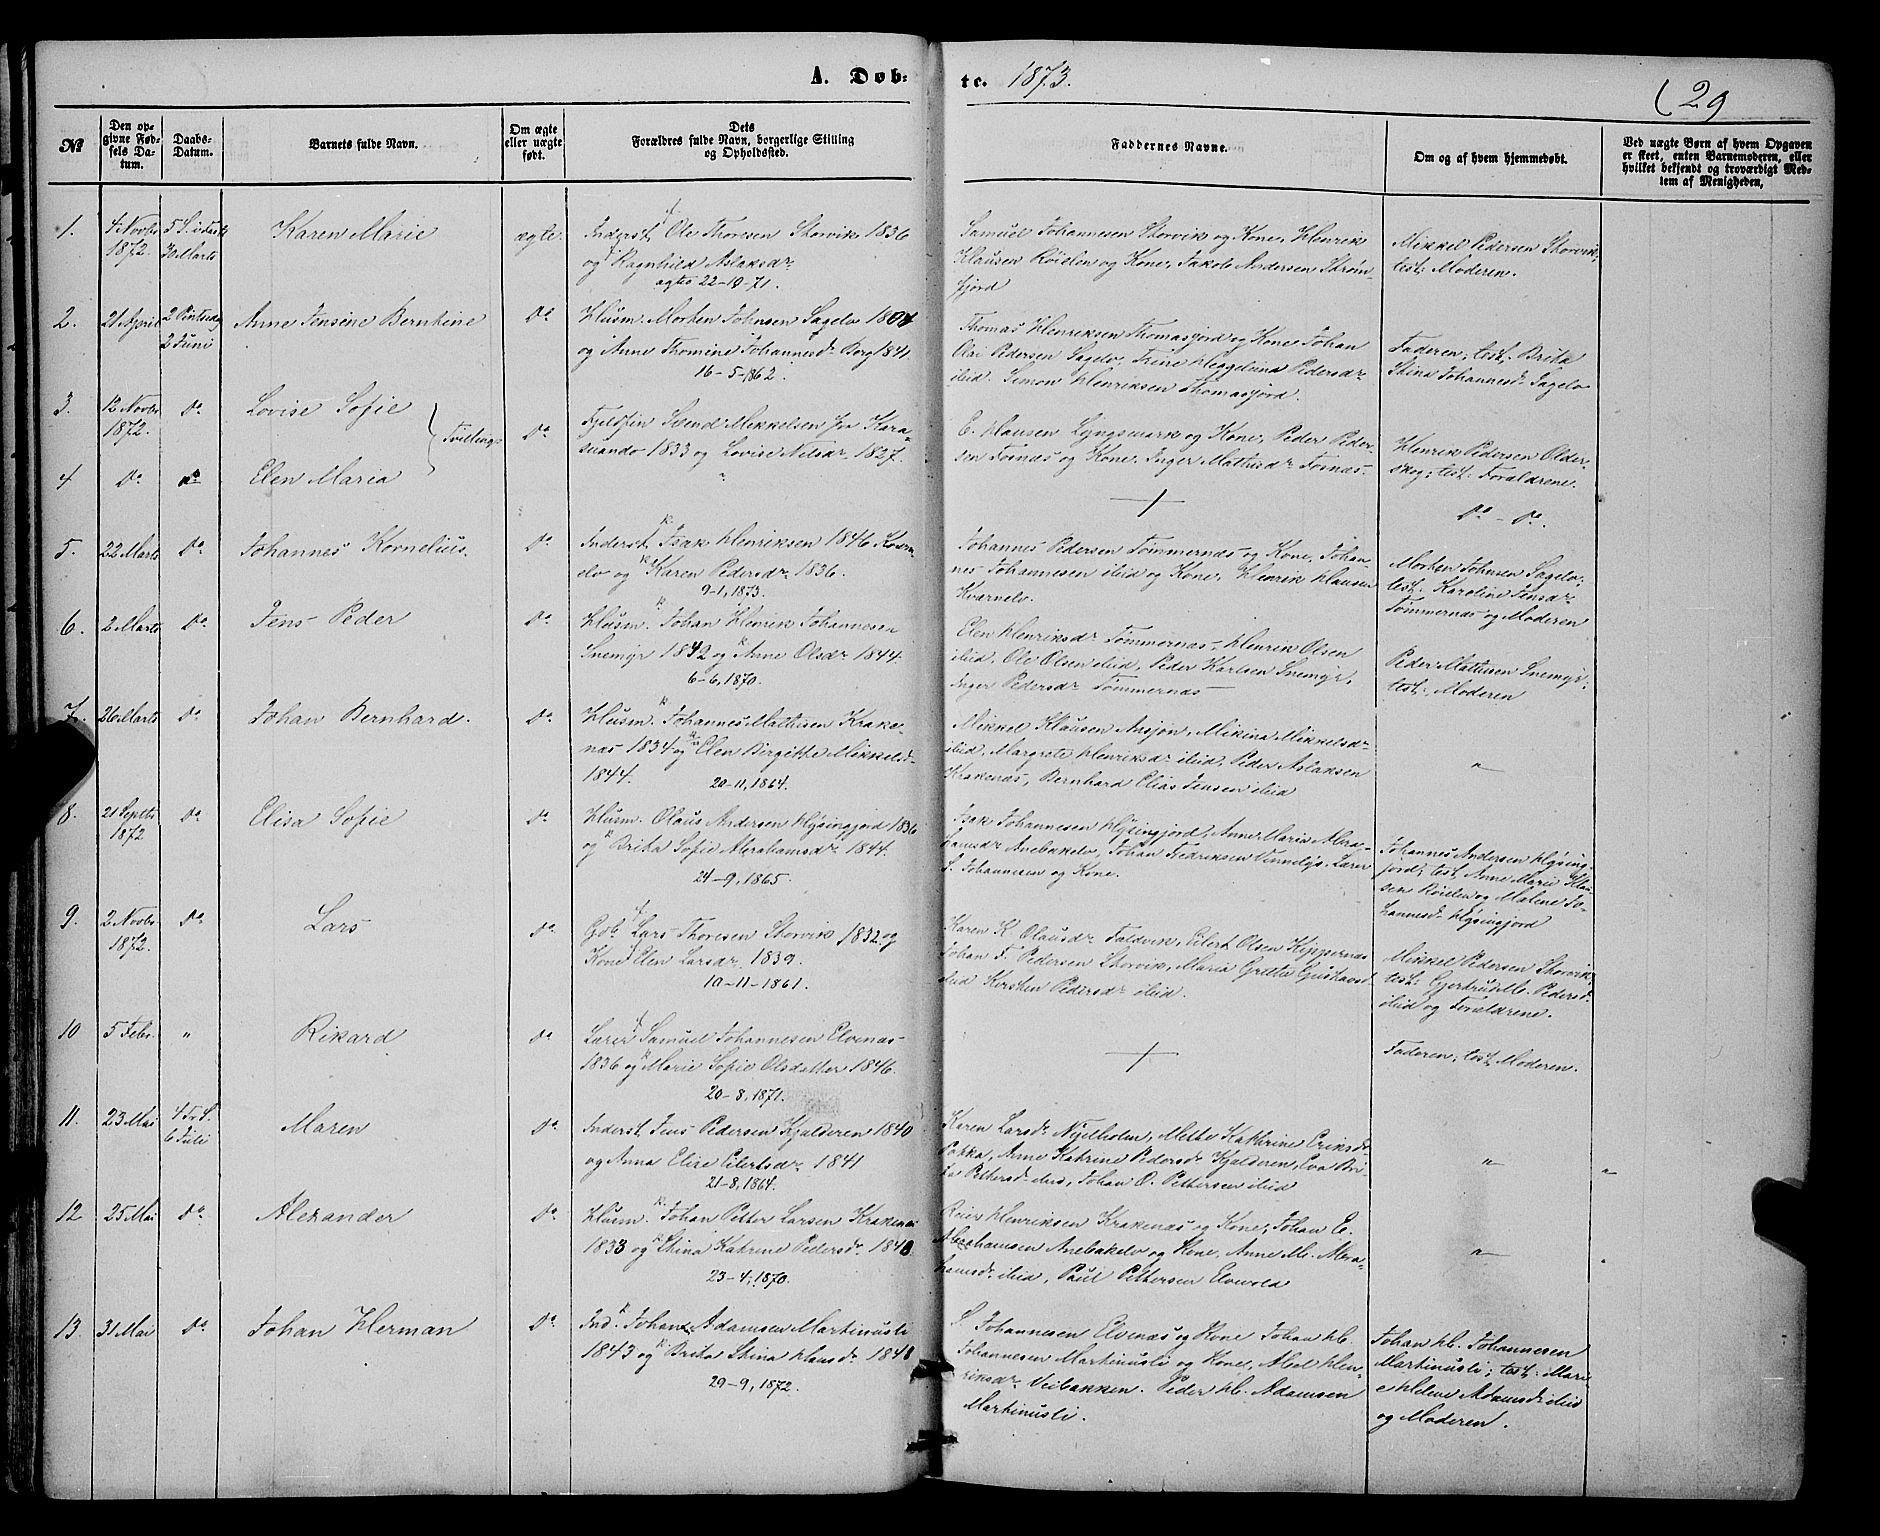 A. Døb-
te. 1873.
29
№
Den op-
givne Fød-
sels Da-
tum.
Daabs-
Datum.
Barnets fulde Navn.
Om ægte
eller uægte
født.
Dets
Forældres fulde Navn, borgerlige Stilling
og Opholdssted.
Faddernes Navne.
Om og af hvem hjemmedøbt.
Ved uægte Børn af hvem Opgaven
er skeet, enten Barnemoderen, eller
hvilket bekjendt og troværdigt Med-
lem af Menigheden.
1.
4 Novbr
1872.
5 S. i Faste
30 Marts
Karen Marie
ægte.
Inderst, Ole Thoresen Storvik 1836
og Ragnhild Aslaksdr
22-10-71.
Samuel Johannesen Storvik og Kone, Henrik
Klausen Röielen og Kone, Jakob Andersen Strøm-
fjord
Mikkel Pedersen Storvik;
test: Moderen.
2.
21 April
2 Pintsedag
2 Juni
Anne Jensine Bernhine
do
Husm. Morten Johnsen Sagelv
og Anne Thomine Johannesdr Borg 1841
16-5-1862.
Thomas Henriksen Thomasjord og Kone, Johan
Olai Pedersen Sagelv, Trine Heggelund Pedersdr
ibid. Simon Henriksen Thomasjord.
Faderen; test. Brita
Stina Johannesdr Sagelv
3.
12 Novbr
1872.
do
Lovise Sofie
Tvillinger
do
Fjeldfin Svend Mikkelsen fra Kara-
suando 1833 og Lovise Nilsdr 1827.
E. Hansen Lyngsmark og Kone, Peder Peder-
sen Tornæs og Kone, Inger Mathisdr Tornæs.
Henrik Pedersen Older-
skog; test. Forældrene.
4
do
do
Elen Maria
"
do - do.
5.
22 Marts
do
Johannes Kornelius.
do
Inderst, Isak Henriksen 1846 Kvern-
elv og Karen Pedersdr 1836.
9-1, 1873.
Johannes Pedersen Tømmernæs og Kone, Johan-
nes Johannesen ibid og Kone, Henrik Hansen
Kvarnelv.
Morten Johnsen Sagelv;
test. Karoline Jensdr
Tømmernæs og Moderen
6.
2 Marts
do
Jens Peder
do
Husm. Johan Henrik Johannesen
Snemyr 1842 og Anne Olsdr 1844.
6-6, 1870.
Elen Henriksdr Tømmernæs, Henrik Olsen
ibid, Ole Olsen ibid, Peder Karlsen Snemyr,
Inger Pedersdr Tømmernæs
Peder Mathisen Snemyr;
test. Moderen
7.
26 Marts
do
Johan Bernhard.
do
Husm. Johannes Mathisen Krake-
næs 1834 og Elen Birgitte Mikkelsdr
1844.
20-11, 1864.
Mikkel Klausen Ansjøn, Mikina Mikkelsdr
ibid, Margrete Henriksdr ibid, Peder Aslaksen
Krakenæs, Bernhard Elias Jensen ibid
"
8.
21 Septbr
1872
do
Elisa Sofie
do
Husm. Olaus Andersen Hysingjord 1836
og Brita Sofie Abrahamsdr 1844.
24-9, 1865.
Isak Johannesen Hysingjord, Anne Maria Abra-
hamsdr Anebakelv, Johan Fredriksen Vennelys, Lærer
S. Johannesen og Kone.
Johannes Andersen Hysing-
jord; test. Anne Marie Klau-
sen Röielen og Maline Jo-
hannesdr Hysingjord
9.
2 Novbr
1872.
do
Lars
do
Gdb. Lars Thoresen Storvik 1832 og
Kone Elen Larsdr 1839.
10-11-1861.
Karen K. Olausdr Faldvik, Eilert Olsen Kippernæs
Johan F. Pedersen Storvik, Maria Grethe Gustavsd
ibid Kirsten Pedersdr ibid.
Mikkel Pedersen Storvik;
test. Gjertrud M. Pedersdr
ibid og Forældrene.
10
5 Febr.
"
Rikard
do
Lærer Samuel Johannesen Elvenæs
1836 og Marie Sofie Olsdatter 1846.
20-8, 1871.
Faderen; test. Moderen.
11.
23 Mai
4 Tr. S.
6 Juli
Maren
do
Inderst, Jens Pedersen Kjelderen 1840
og Anna Elise Eilertsdr 1841
21-8, 1864.
Karen Larsdr Nyelholm, Mette Kathrine Eriksdr
Pokka, Anne Katrine Pedersdr Kjelderen, Eva Bri-
ta Pettersdr ibid, Johan O. Pettersen ibid
"
"
12
25 Mai
do
Alexander
do
Husm. Johan Petter Larsen Krakenæs
1833 og Stina Katrine Pedersdr
23-4, 1870.
Reier Henriksen Krakenæs og Kone, Johan E.
Abrahamsen Anebakelv og Kone, Anne M. Abra-
hamsdr ibid, Paul Pettersen Elvevold
"
13.
31 Mai
do
Johan Herman
do
Ind. Johan Adamsen Martinusli
1843 og Brita Stina Hansdr
29-9, 1872.
S. Johannesen Elvenæs og Kone Johan H.
Johannesen Martinusli og Kone, Abel Hen-
riksdr Veibakken. Peder H. Adamsen
Martinusli.
Johan H. Johannesen
Martinusli; test. Mari-
e Helene Adamsdr ibid
og Moderen.